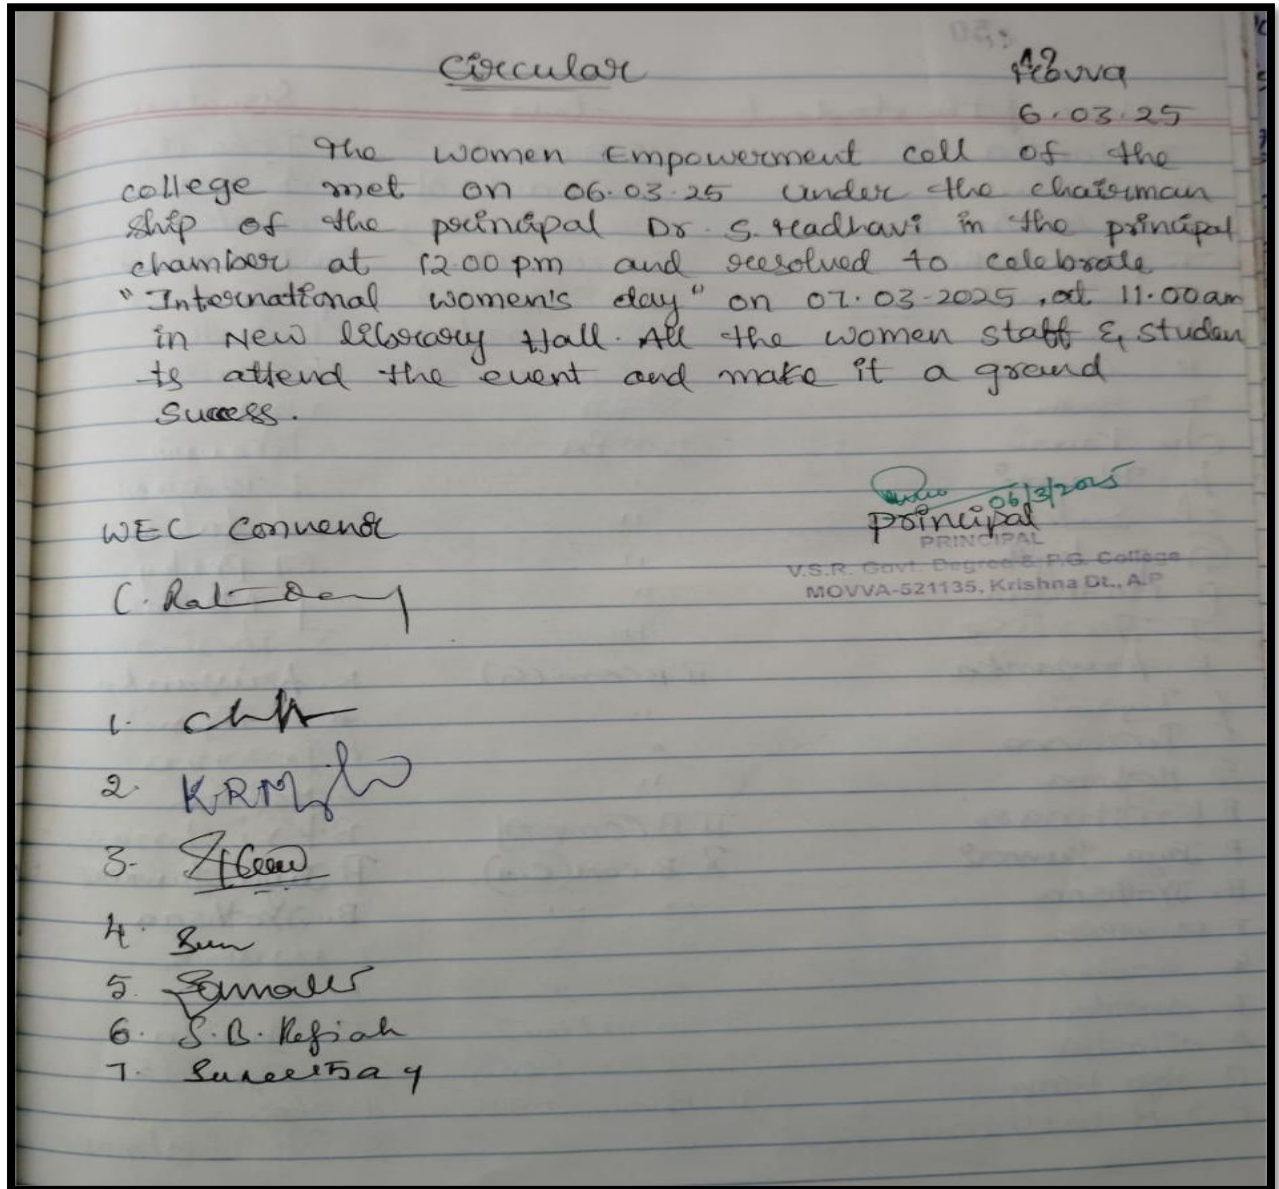 Circular
Movva
6.03.25
The women Empowerment cell of the
college met on 06.03.25 under the chairman
ship of the principal Dr. S. Madhavi in the principal
chamber at 12.00 pm and resolved to celebrate
"International women's day" on 07.03.2025, at 11.00 am
in New library Hall. All the women staff & studen
ts attend the event and make it a grand
Success.
06/3/2025
WEC Convenor
principal
PRINCIPAL
V.S.R. Govt. Degree & P.G. College
MOVVA-521135, Krishna Dt., A.P
C.
1.
2. KRM
3.
4.
5.
6. S.B.
7.